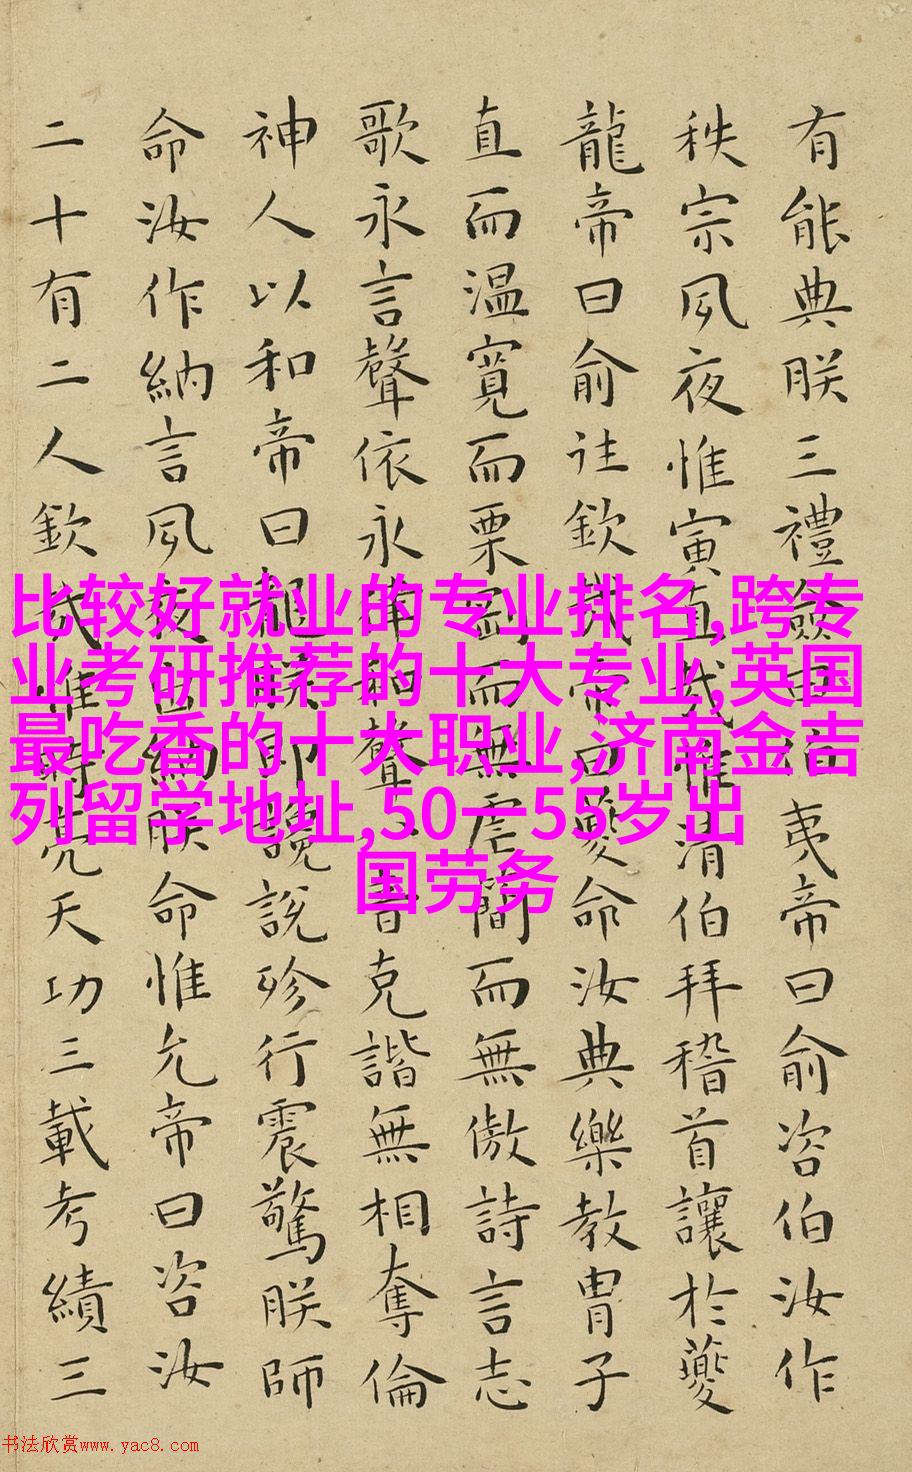 有能典朕三禮僉曰伯夷帝曰俞咨伯汝作
秩宗夙夜惟寅直哉惟清伯拜稽首讓於夔
龍帝曰俞往欽哉帝曰夔命汝典樂教冑子
直而温寬而栗剛而無虐簡而無傲詩言志
歌永言聲依永律和聲八音克諧無相奪倫
神人以和帝曰龍朕讒說殄行震驚朕師
命汝作納言夙夜出納朕命惟允帝曰咨汝
二十有二人欽哉惟時亮天功三載考績三
比较好就业的专业排名,跨专
业考研推荐的十大专业,英国
最吃香的十大职业,济南金吉
列留学地址,50一55岁出
国劳务
书法欣赏www.yac8.com